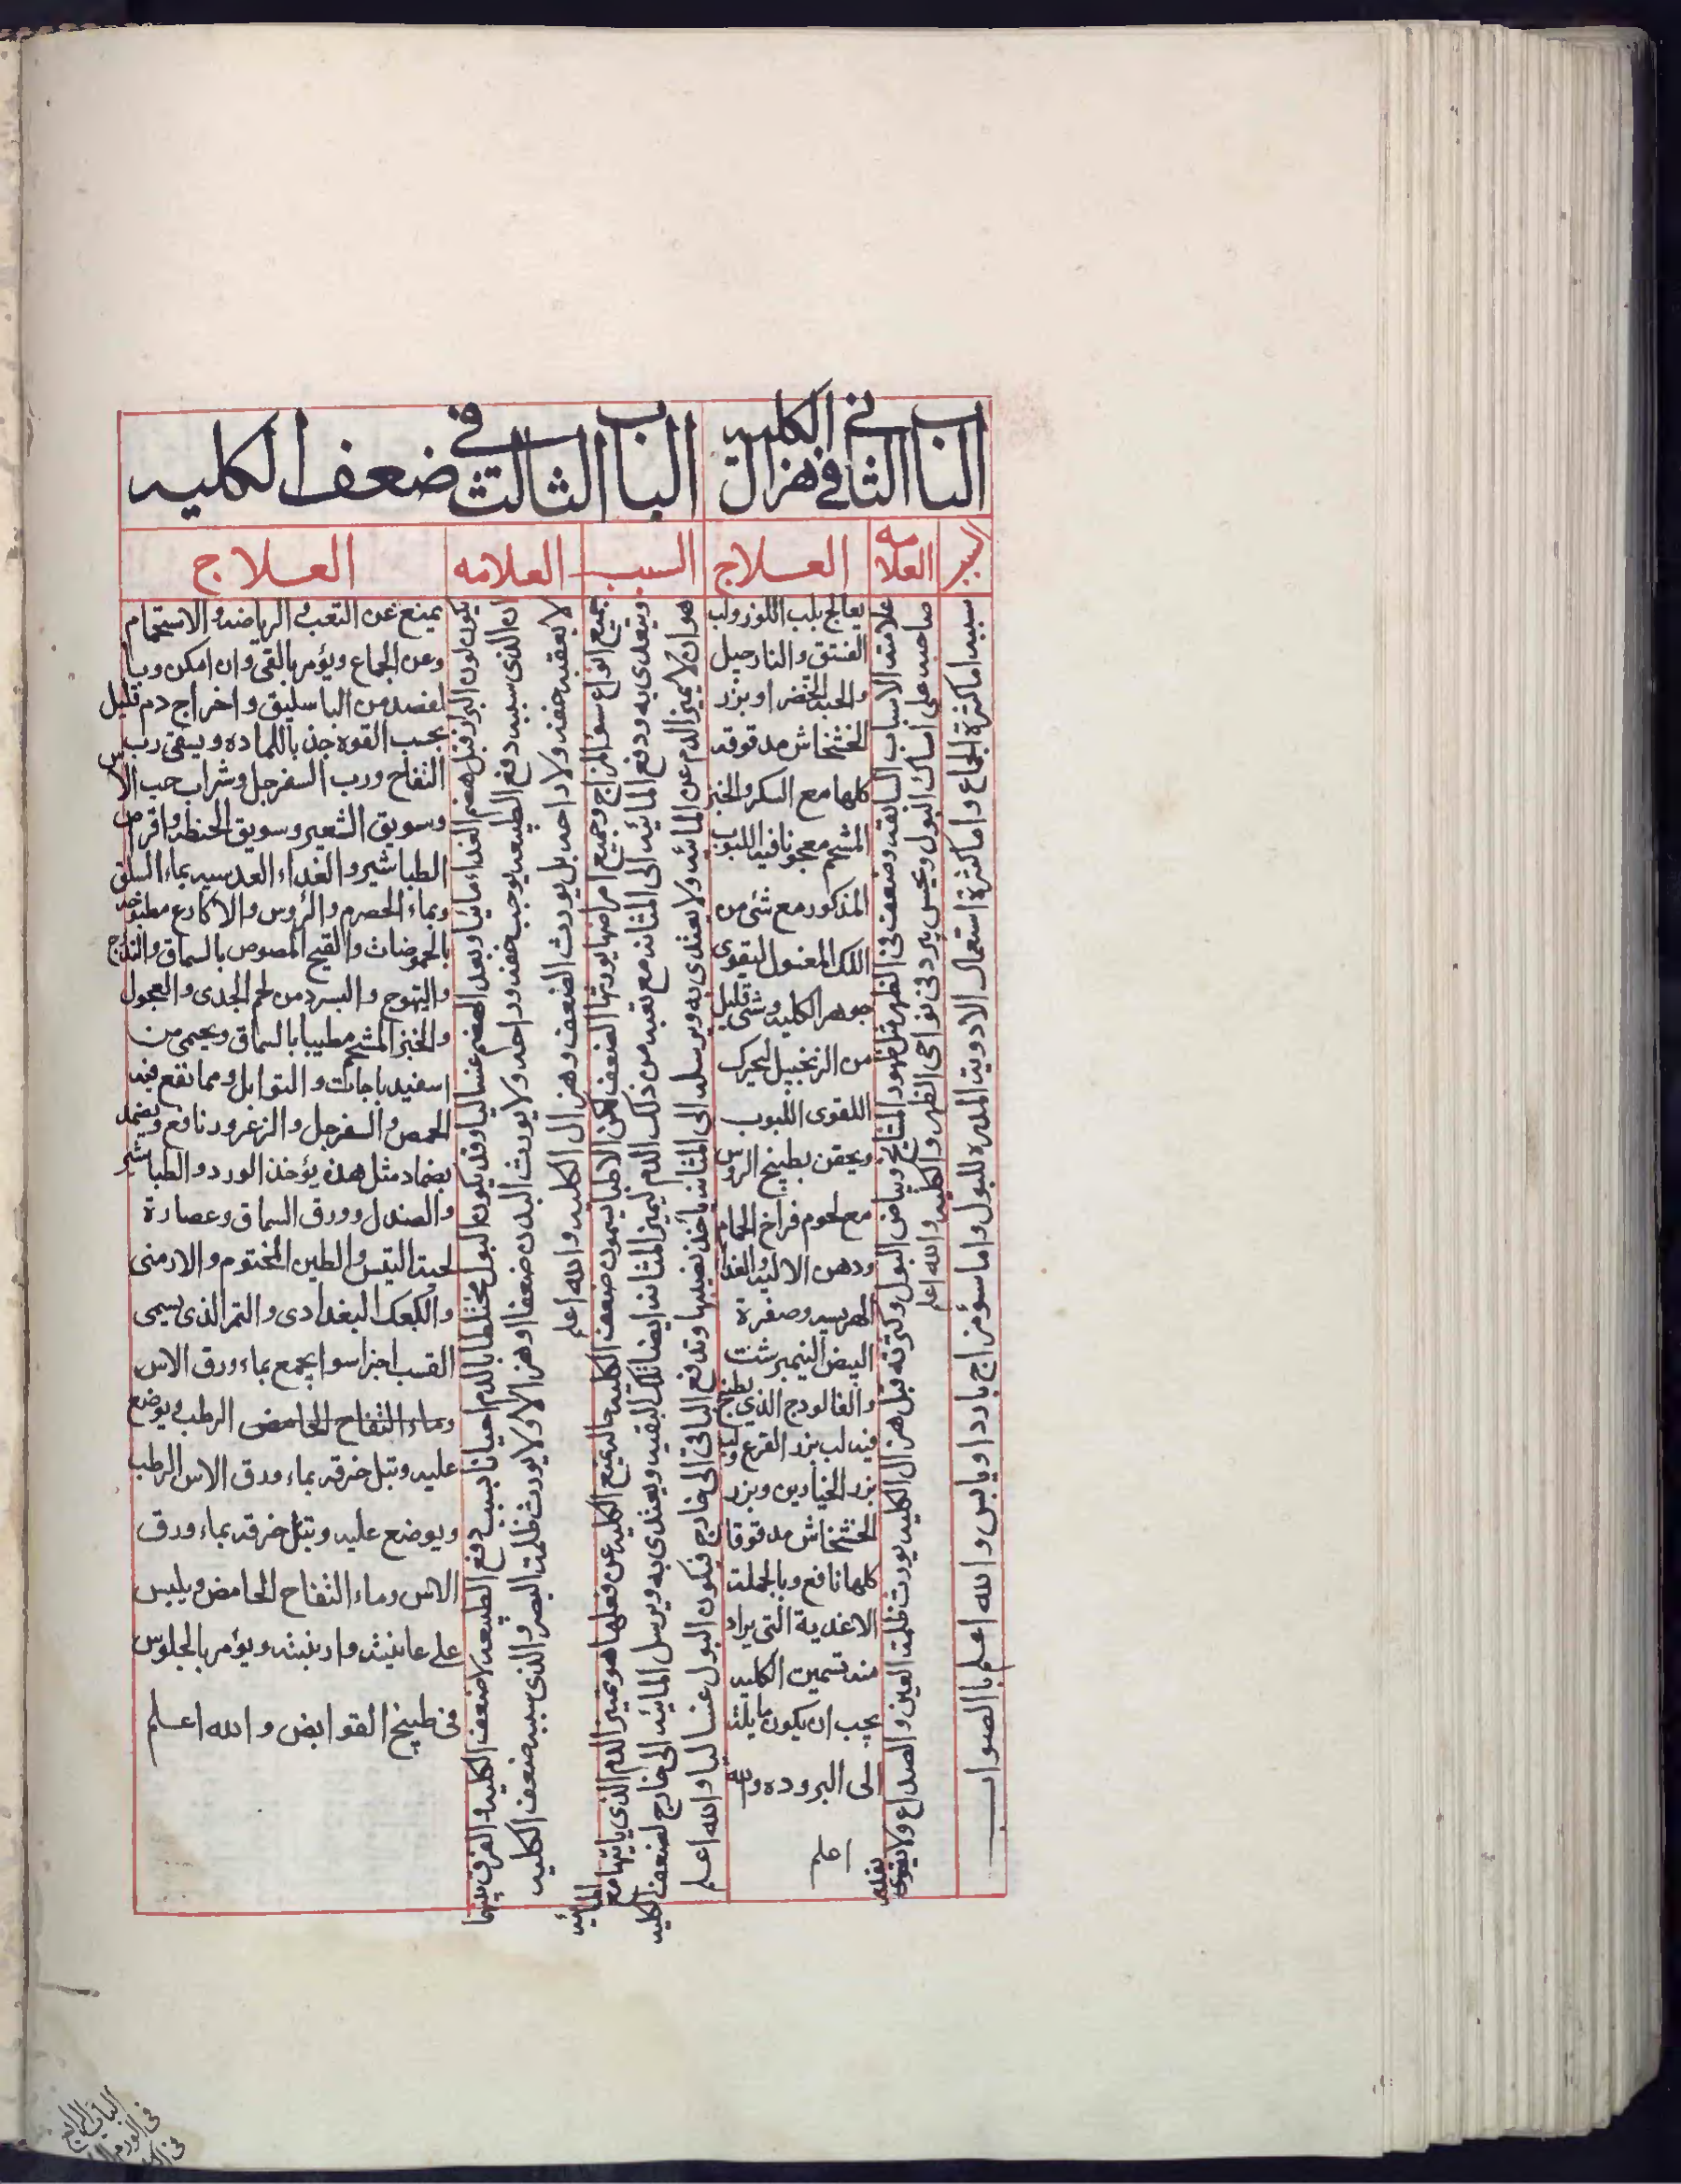 الباب الثانى فى هزال الكليه
الباب الثالث فى ضعف الكليه
السبب
العلامه
العلاج
السبب
العلامه
العلاج
سببه اما كثرة الجماع واما كثرة استعمال الادوية المدره للبول واما سؤ مزاج بارد او يابس والله اعلم بالصواب
علامته الاسباب السابقه وضعف فى الظهر مثل ظهور المشايخ وبياض البول وكثرته قبل هزال الكليه يورث ظلمة العين والصداع ولا يقوى
صاحبه على امساك البول ويحس ببرد فى نواحى الظهر والكليه والله اعلم
يعالج بلب اللوز ولب
الفستق والنارجيل
والحبه الخضرا وبزر
الخشخاش مدقوقه
كلها مع السكر والخبز
المشحم معجونا فيه اللبوب
المذكور مع شئ من
اللك المغسول لتقوى
جوهر الكليه وشئ قليل
من الزنجبيل ليحرك
اللقوى اللبوب
ويحقن بطبيخ الروس
مع لحوم فراخ الحمام
ودهن الاليه والغدا
الهريسه وصفرة
البيض النيمبرشت
والفالودج الذى يطبخ
فيه لب بزر القرع ولب
بزر الخيارين وبزر
الخشخاش مدقوقا
كلها نافع وبالجملة
الاغذية التى يراد
منه تسمين الكليه
يجب ان يكون مايلة
الى البروده والله
اعلم
هو ان لا يميز الدم عن المائيه ولا يغتدى به ويرسله الى المثانه يأخذ نصيبها وتدفع الباقى الى خارج فيكون البول غساليا والله اعلم
ويغتدى به ودفع المائيه الى المثانه مع بقيه من ذلك الدم ليميز المثانه ايضا تلك البقيه ويغتدى به ويرسل المائيه الى خارج لضعف الكليه
جميع انواع سؤ المزاج وجميع امراضها يورثها الضعف لكن الاطبا يسمون ضعف الكليه حاله يمنع الكليه عن فعلها هو تميز الدم الذى ياتيها مع المائيه
يكون لون البراز قبل هضم الغداء مائيا وبعد الهضم غساليا وقد يكون البول مختلطا بالدم احيانا بسبب دفع الطبيعه لا ضعف الكليه والفرق بينهما
ان الذى سببه دفع الطبيعه يوجب خفه وراحه ولا يورث البدن ضعفا او هزالا ولا يورث ظلمة البصر والذى سببه ضعف الكليه
لا يعقبه خفه ولا راحه بل يورث الضعف وهزال الكليه والله اعلم
يمنع عن التعب والرياضه والاستحمام
وعن الجماع ويؤمر بالقى وان امكن وبا
لفصد من الباسليق واخراج دم قليل
بحسب القوه جذبا للماده ويسقى رب
التفاح ورب السفرجل وشراب حب الاس
وسويق الشعير وسويق الحنطه واقراص
الطباشير والغداء العدسيه بماء السلق
وبماء الحصرم والروس والاكارع مطبوخه
بالحموضات والقبج المصوص بالسماق والتدرج
والتيهوج والبسرد من لحم الجدى والعجول
والخبز المشحم مطيبا بالسماق ويحمى من
اسفيد باجات والتوابل ومما نقع فيه
الحمص والسفرجل والزعرور نافع ويضمد
بضماد مثل هذه يؤخذ الورد والطباشير
والصندل وورق السماق وعصارة
لحية التيس والطين المختوم والارمنى
والكعك البغدادى والتمر الذى يسمى
القسب اجزا سوا يجمع بماء ورق الاس
وماء التفاح الحامض الرطب ويوضع
عليه وتبل خرقه بماء ورق الاس الرطب
ويوضع عليه وتبل خرقه بماء ورق
الاس وماء التفاح الحامض ويلبس
على عانيته واربيته ويؤمر بالجلوس
فى طبيخ القوابض والله اعلم
الباب الرابع
فى الورم